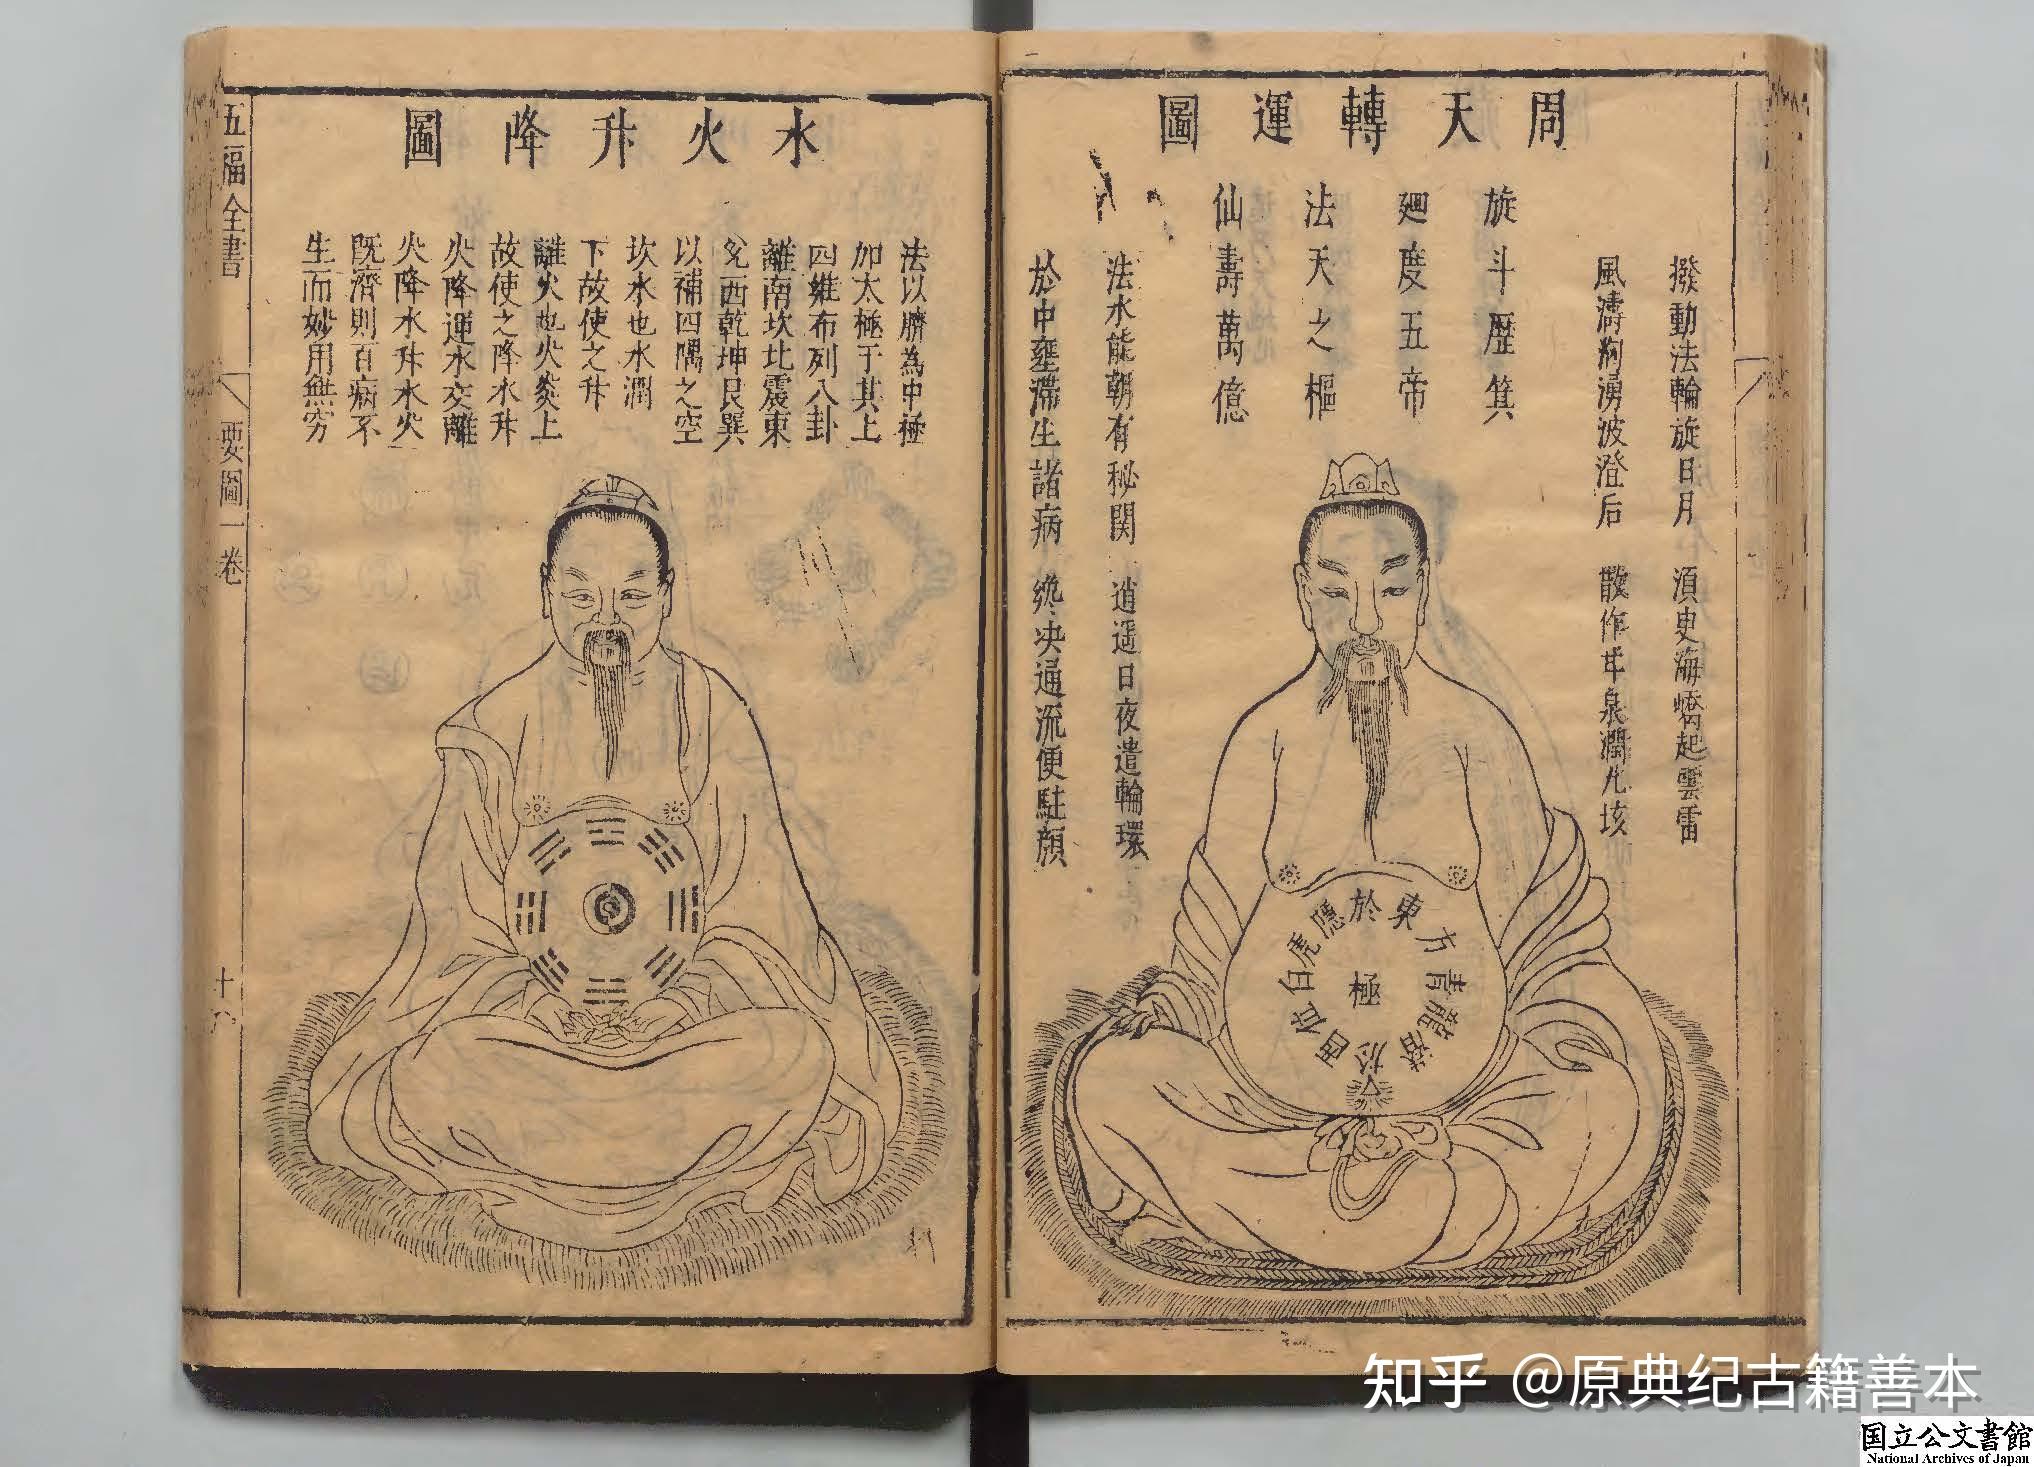 周天轉運圖
撥動法輪旋日月 須臾海嶠起雲雷
風濤洶湧波澄后 散作甘泉潤九垓
旋斗歷箕
廻度五帝
法天之樞
仙壽萬億
法水能朝有秘関 逍遥日夜遣輪環
於中壅滯生諸病 纔决通流便駐顔
東方青龍落於西位白虎隱於
極
水火升降圖
法以臍為中極
加太極于其上
四維布列八卦
離南坎北震東
兊西乾坤艮巽
以補四隅之空
坎水也水潤
下故使之升
離火也火炎上
故使之降水升
火降運水交離
火降水升水火
既濟則百病不
生而妙用無穷
五福全書
要圖一卷
十八
知乎 @原典纪古籍善本
国立公文書館
National Archives of Japan